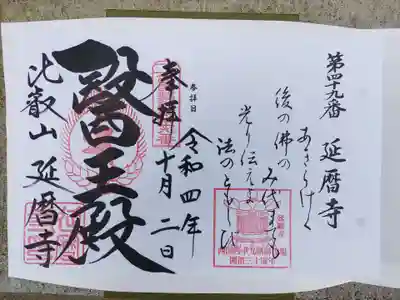 第四十九番 延暦寺
あきらけく
後の佛の
み代までも
光り伝えよ
法のともしび
参拝日
令和四年
十月二日
奉拝
醫王殿
比叡山 延暦寺